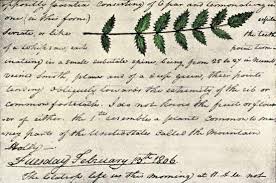 oppositly pinnate consisting of 6 par and terminating in
one (in this form)
serrate, or like the teeth
of a whipsaw, each point ter-
minating in a small subulate spine, being from 25 to 27 in numb
veins smooth, plane and of a deep green, their points
tending obliquely towards the extremity of the rib or
common footstalk. I do not know the fruit or flow
er of either. the 1st resembles a plant common to ma
ny parts of the United States called the Mountain
Holly.
Tuesday February 13th 1806.
The left us this morning at